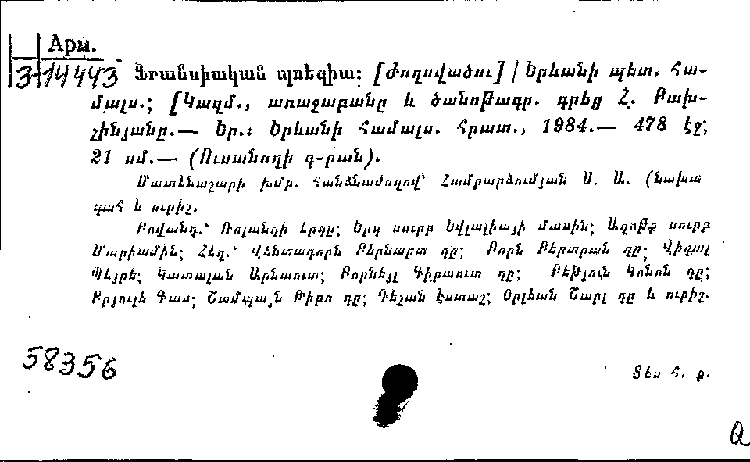 Արմ.
3-14443 Ֆրանսիական պոեզիա: [Ժողովածու] / Երևանի պետ. Հա-
մալս.; [Կազմ., առաջաբանը և ծանոթագր. գրեց Հ. Բախ-
չինյանը.— Եր.: Երևանի Համալս. Հրատ., 1984.— 478 էջ;
21 սմ.— (Ուսանողի գ-րան).
Մատենաշարի խմբ. Հանձնաժողով՝ Համբարձումյան Ս. Ա. (նախա
գահ և ուրիշ.
Բովանդ.՝ Ռոլանդի Երգը; Երգ սուրբ Եվլալիայի մասին; Աղոթք սուրբ
Մարիամին; Հեղ.՝ Վենտադորն Բեռնարտ դը; Բորն Բերտրան դը; Վիդալ
Պեյրե; Կատալան Արնաուտ; Բորնեյլ Գիրաուտ դը; Բեթյուն Կոնոն դը;
Բրյուլե Գաս; Շամպայն Թիբո դը; Դեշան Էստաշ; Օրլեան Շարլ դը և ուրիշ.
58356
Տես Հ. ք.